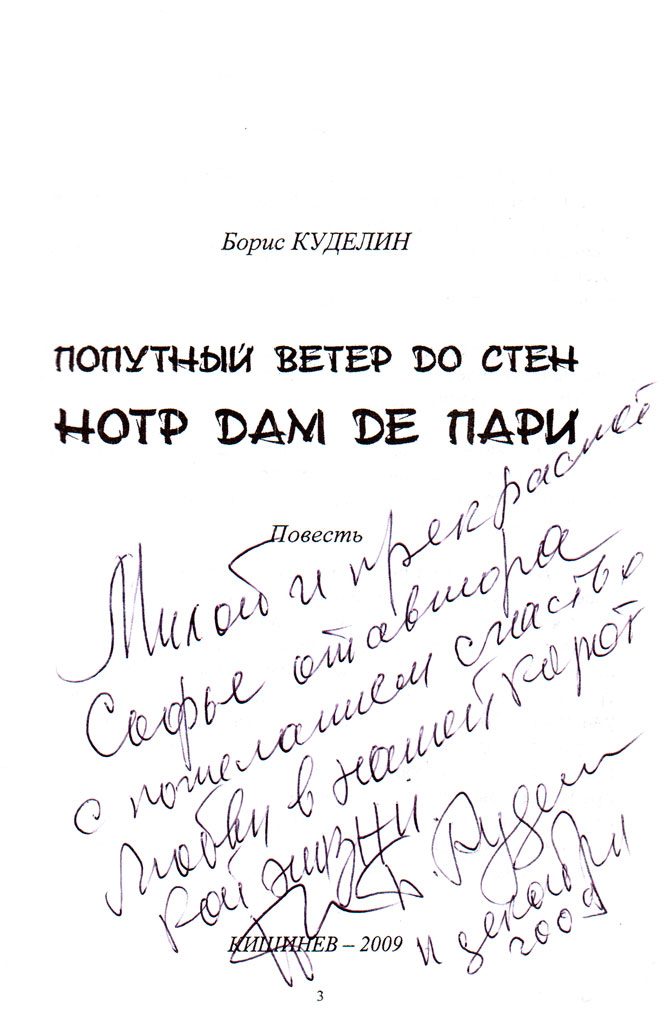 Борис КУДЕЛИН
ПОПУТНЫЙ ВЕТЕР ДО СТЕН
НОТР ДАМ ДЕ ПАРИ
Повесть
Милой и прекрасной
Софье от автора
с пожеланием счастья
любви в нашей корот
кой жизни.
Б. Кудели
11 декабря
2009
КИШИНЕВ – 2009
3